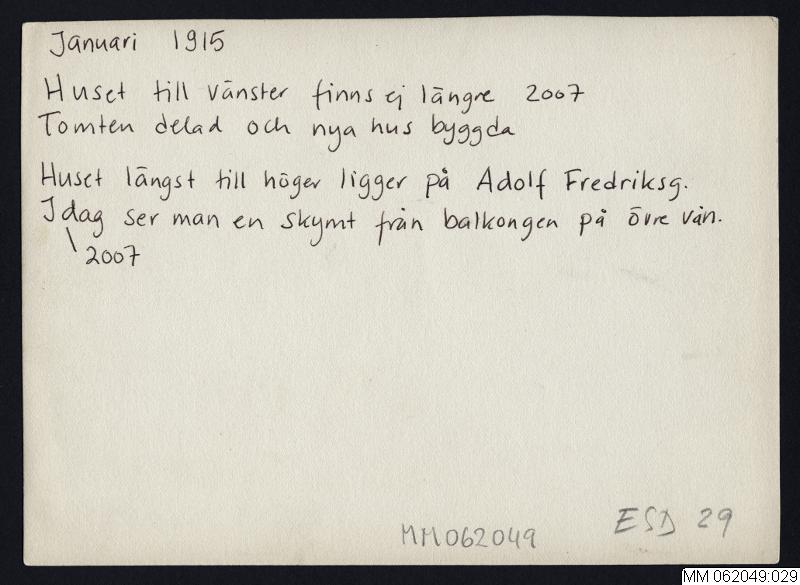 Januari 1915
Huset till vänster finns ej längre 2007
Tomten delad och nya hus byggda
Huset längst till höger ligger på Adolf Fredriksg.
Idag ser man en skymt från balkongen på övre vån.
2007
MM062049
ESD 29
MM 062049:029